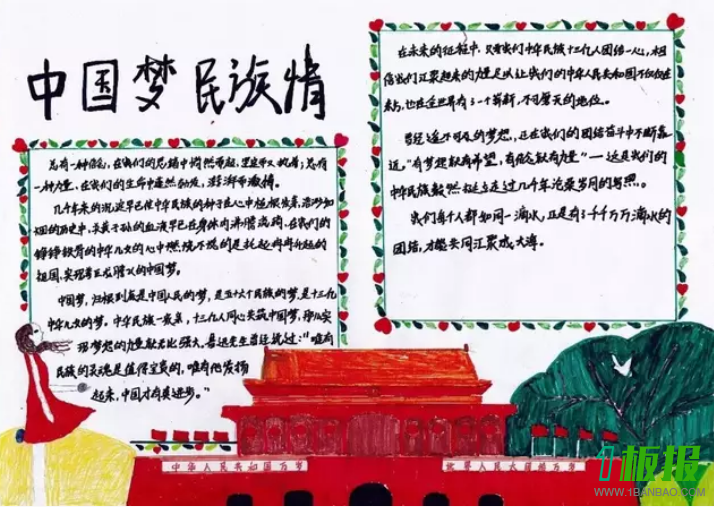 中国梦民族情
总有一种信心,在我们的思绪中悄然而起,坚定而又执着;总有
一种力量,在我们的生命中蓬然勃发,澎湃而激情。
几千年来的沉淀早已使中华民族的种子在心中植根发芽,浩渺如
烟的历史中,炎黄子孙的血液早已在身体内沸腾流淌,在我们的
铮铮铁骨的中华儿女的心中燃烧不熄的是托起冉冉升起的
祖国,实现着正龙腾飞的中国梦。
中国梦,归根到底是中国人民的梦,是五十六个民族的梦,是十三亿
中华儿女的梦。中华民族一家亲,十三亿人同心共筑中国梦,那么实
现梦想的力量就无比强大,鲁迅先生曾经说过:"唯有
民族的灵魂是值得宝贵的,唯有他发扬
起来,中国才有真进步。"
在未来的征程中,只要我们中华民族十三亿人团结一心,相
信我们汇聚起来的力量足以让我们的中华人民共和国不仅仅在
东方,也在全世界有了一个崭新,不可撼天的地位。
曾经遥不可及的梦想,正在我们的团结奋斗中不断靠
近,"有梦想就有希望,有信念就有力量"——这是我们的
中华民族毅然挺立在过几千年沧桑岁月的写照。
我们每个人都如同一滴水,正是有了千千万万滴水的
团结,才能共同汇聚成大海。
中华人民共和国万岁
世界人民大团结万岁
1板报
WWW.1BANBAO.COM